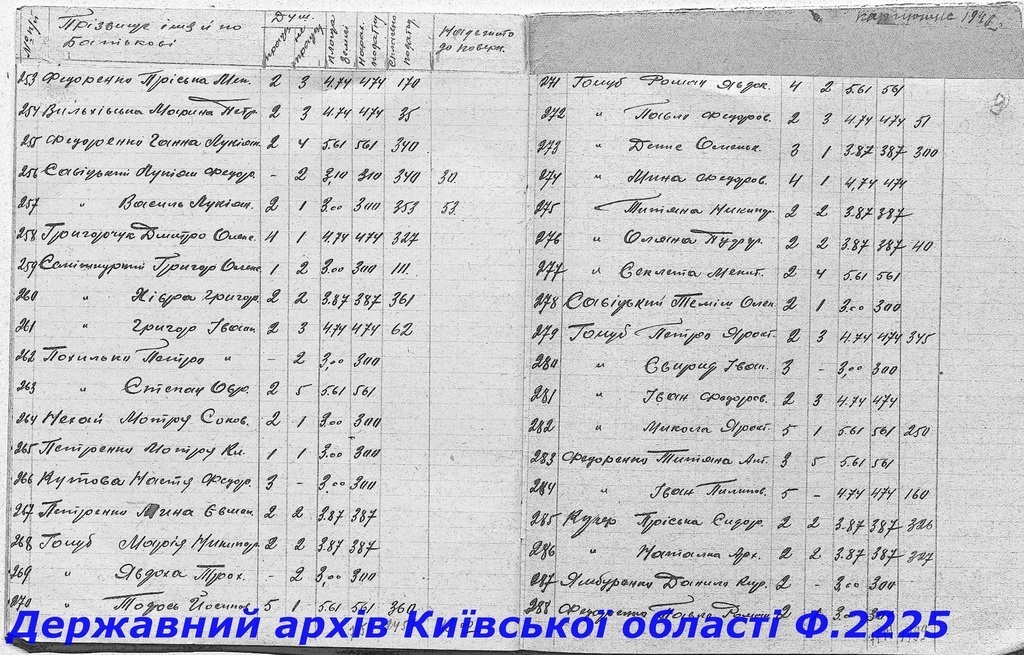 № п/п Прізвище імя й по Батькові Душ. працез. не працез. площа землі Нарах. податку Сплачено податку Належить до поверн.
253 Федоренко Пріська Мек. 2 3 4.74 474 170
254 Вильхівська Марина Петр. 2 3 4.74 474 35
255 Федоренко Ганна Лукіян. 2 4 5.61 561 340
256 Савіцький Лукіян Федор. - 2 3,10 310 340 30.
257 " Василь Лукіян. 2 1 3.00 300 353 53.
258 Григорчук Дмитро Олекс. 4 1 4.74 474 327
259 Григор Олекс. 1 2 3.00 300 111.
260 " Хівря Григор. 2 2 3.87 387 361
261 " Григор Іван. 2 3 4.74 474 62
262 Похилько Петро " - 2 3,00 300
263 " Степан Овр. 2 5 5.61 561
264 Нехай Мотря Соков. 2 1 3.00 300
265 Петренко Мотря Кл. 1 1 3.00 300
266 Кутова Настя Федор. 3 - 3,00 300
267 Петренко 2 2 3.87 387
268 Голуб Марія Никипор. 2 2 3.87 387
269 " Явдоха Трох. - 2 3.00 300
270 " Тодось Йосипов. 5 1 5.61 561 360
271 Голуб Роман Явдок. 4 2 5.61 561
272 " Павло Федоров. 2 3 4.74 474 51
273 " Денис Олекск. 3 1 3.87 387 300
274 " Мина Федоров. 4 1 4,74 474
275 Титяна Никипор. 2 2 3.87 387
276 " Оляна 2 2 3.87 387 40
277 " Секлета Мекит. 2 4 5.61 561
278 Савіцький Олек. 2 1 3.00 300
279 Голуб Петро Ярост. 2 3 4.74 474 345
280 " Свирид Іван. 3 - 3,00 300
281 " Іван Федоров. 2 3 4.74 474
282 " Микола Ярост. 5 1 5.61 561 250
283 Федоренко Титяна Ант. 3 5 5.61 561
284 " Іван Пилипов. 5 - 4.74 474 160
285 Пріська Сидор. 2 2 3.87 387 326
286 " Наталка Арх. 2 2 3.87 387 327
287 Ямбуренко Данило Кир. 2 - 3.00 300
288 Федоренко Павло Роман. 2 1 3.00
Державний архів Київської області Ф.2225